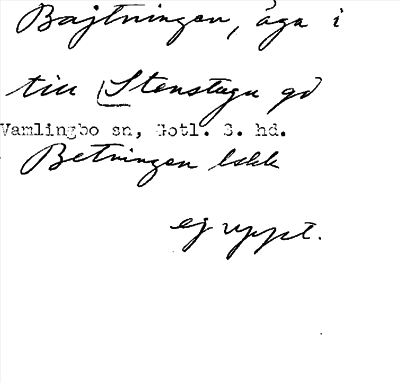 Bajtningen, äga i
till Stenstugu gd
Vamlingbo sn, Gotl. S. hd.
Betningen lskk
ej uppt.